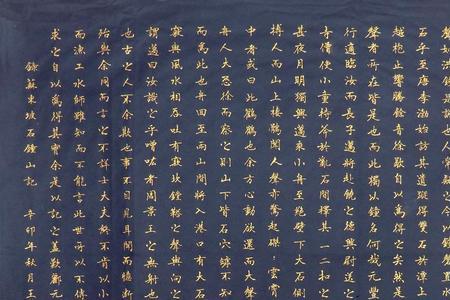 石乎至唐李渤始訪其遺蹤得雙石於潭上
越枹止響騰餘音徐歇自以為得之矣然是
聲者所在皆是也而此獨以鐘名何哉元豐
行適臨汝而長子邁將赴饒之德興尉送之
寺僧使小童持斧於亂石間擇其一二扣之
莫夜月明獨與邁乘小舟至絕壁下大石側
搏人而山上棲鶻聞人聲亦驚起磔磔雲霄
中者或曰此鸛鶴也余方心動欲還而大聲
舟人大恐徐而察之則山下皆石穴罅不知
而為此也舟回至兩山間將入港口有大石
竅與風水相吞吐有窾坎鏜鞳之聲與向之
謂邁曰汝識之乎噌吰者周景王之無射也
也古之人不余欺也事不目見耳聞而臆斷
殆與余同而言之不詳士大夫終不肯以小
而漁工水師雖知而不能言此世所以不傳
求之自以為得其實余是以記之蓋歎酈元
錄蘇東坡石鐘山記 辛卯年秋月